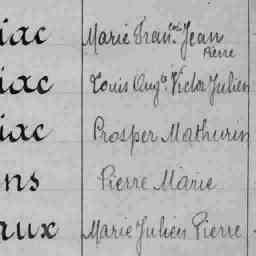 iac Marie Fran.çois Jean
Pierre
iac Louis Aug.te Victor Julien
iac Prosper Mathurin
ns Pierre Marie
aux Marie Julien Pierre